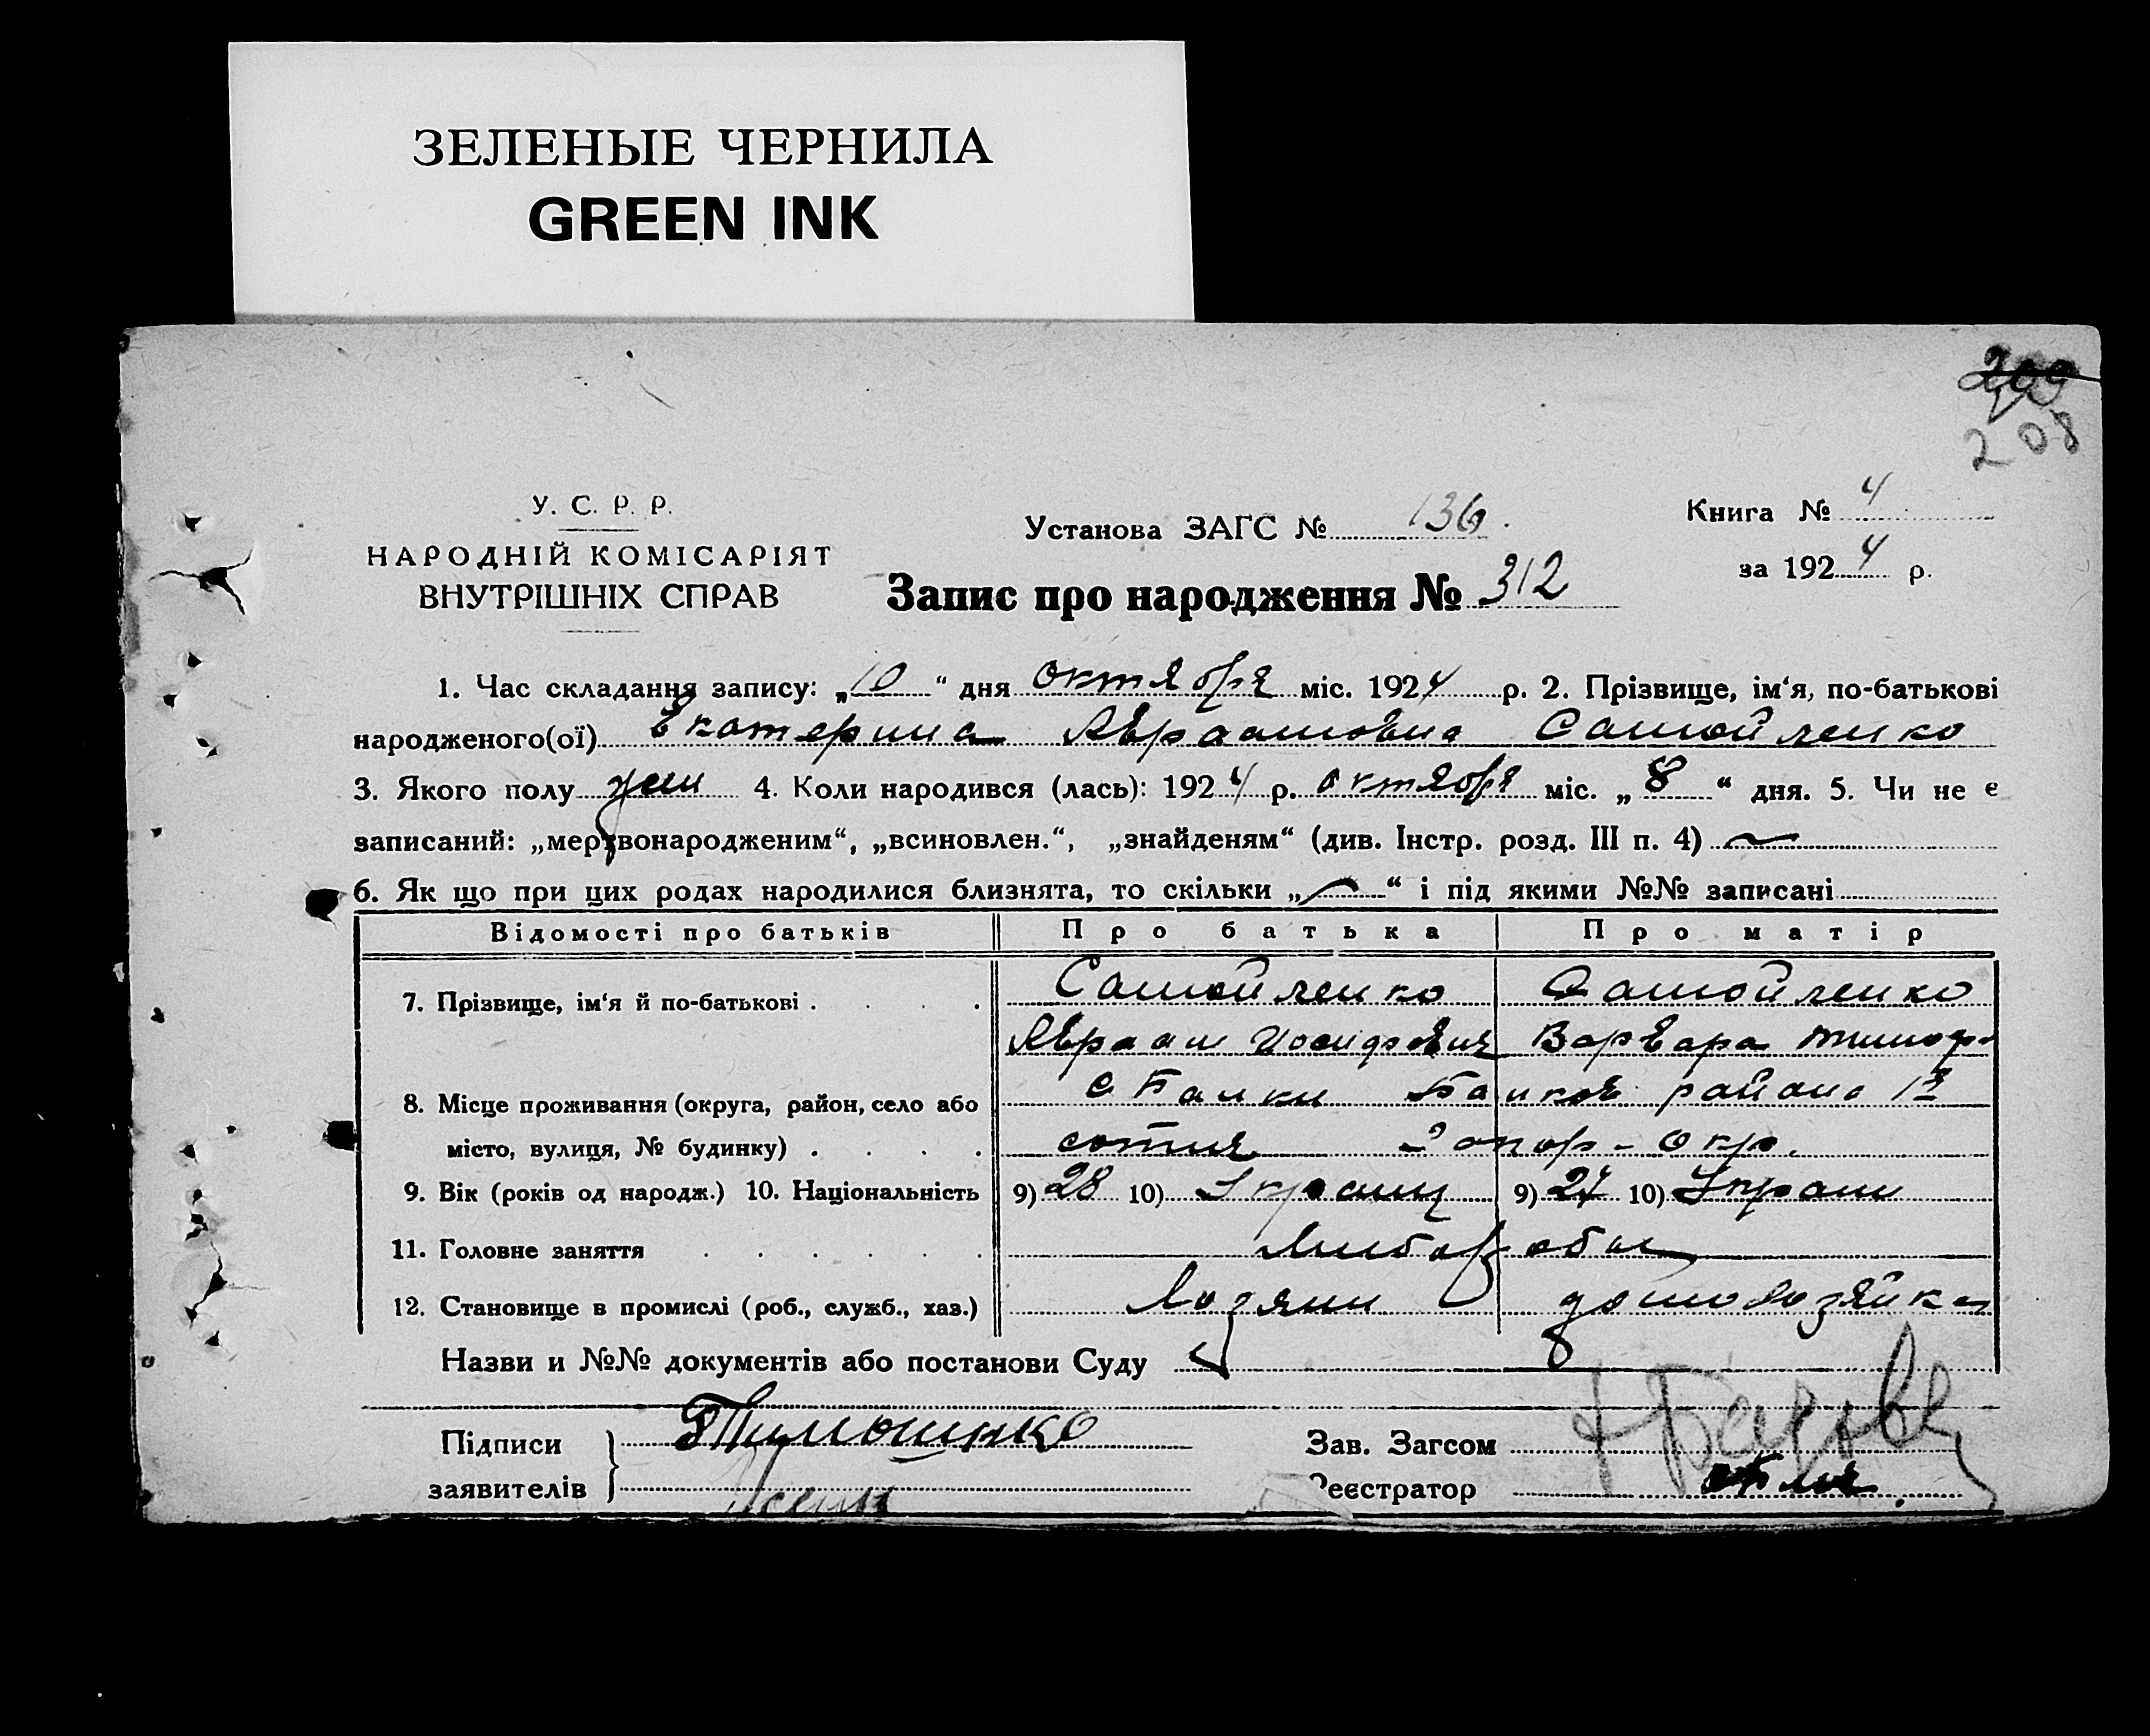 ЗЕЛЕНЫЕ ЧЕРНИЛА
GREEN INK
208
У. С. Р. Р.
НАРОДНІЙ КОМІСАРІЯТ
ВНУТРІШНІХ СПРАВ
Установа ЗАГС № 136.
Запис про народження № 312
Книга № 4
за 1924 р.
1. Час складання запису: „10“ дня октября міс. 1924 р. 2. Прізвище, ім‘я, по-батькові
народженого(ої) Екатерина Авраамовна Самойленко
3. Якого полу жен 4. Коли народився (лась): 1924 р. октября міс. „8“ дня. 5. Чи не є
записаний: „мертвонародженим“, „всиновлен.“, „знайденям“ (див. Інстр. розд. III п. 4)
6. Як що при цих родах народилися близнята, то скільки „ “ і під якими №№ записані
Відомості про батьків Про батька Про матір
7. Прізвище, ім‘я й по-батькові . Самойленко Самойленко
Авраам Иосифович Варвара Тимоф
8. Місце проживання (округа, район, село або с Балки района 1я
місто, вулиця, № будинку) . сотня Запор-Окр.
9. Вік (років од народж.) 10. Національність 9) 28 10) Украинц 9) 24 10) Украин
11. Головне заняття Хлебороб
12. Становище в промислі (роб., служб., хаз.) Хозяин домохозяйка
Назви и №№ документів або постанови Суду
Підписи Тимошенко Зав. Загсом
заявителів Реєстратор